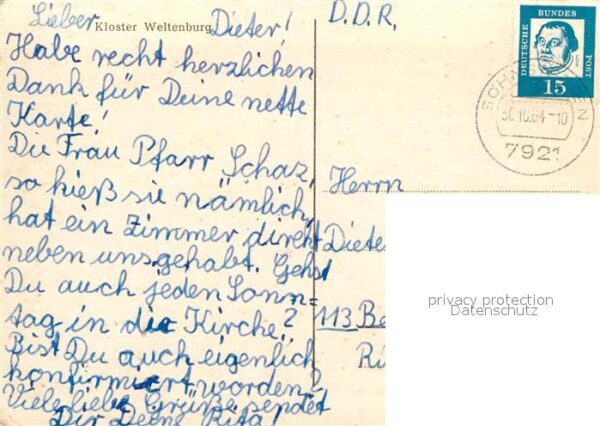 Lieber Dieter!
Kloster Weltenburg
Habe recht herzlichen
Dank für Deine nette
Karte!
Die Frau Pfarr Schaz,
so hieß sie nämlich,
hat ein Zimmer direkt
neben uns gehabt. Gehst
Du auch jeden Sonn=
tag in die Kirche?
Bist Du auch eigenlich
konfirmiert worden?
Viele liebe Grüße sendet
Dir Deine Rita!
D.D.R.
DEUTSCHE BUNDES POST
15
30.10.64-10
7921
Herrn
Dieter
113 Be
Ri
privacy protection
Datenschutz